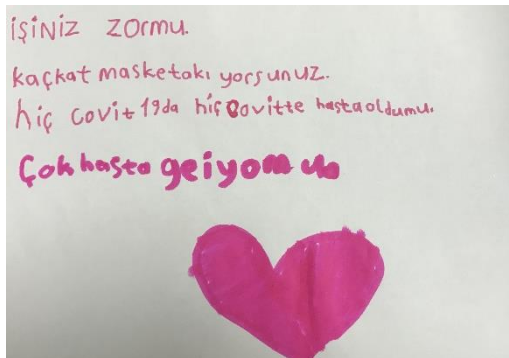 işiniz zormu.
kaçkat masketakı yorsunuz.
hiç covit 19da hiç covitte hastaoldumu.
Çok hasta geiyomu